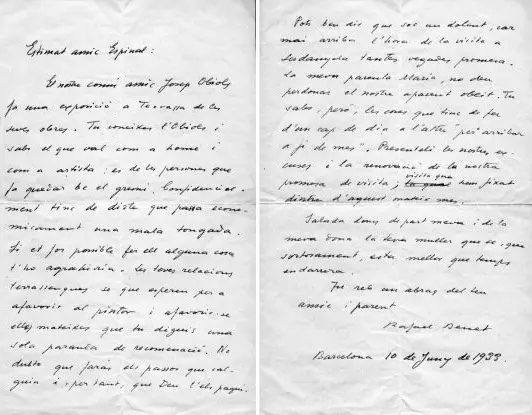 Estimat amic Espinal:
El nostre comú amic Josep Obiols
fa una exposició a Terrassa de les
seves obres. Tu coneixes l'Obiols i
saps el que val com a home i
com a artista: és de les persones que
fa quedar bé el gremi. Confidencial-
ment tinc de dir-te que passa econo-
micament una mala tongada.
Si et fos possible fer-li alguna cosa
t'ho agrahiria. Les teves relacions
terrassenques se que esperen per a
afavorir al pintor i afavorir-se
ells mateixes que tu diguis una
sola paraula de recomenació. No
dubto que faràs els passos que cal-
guin i, per tant, que Deu t'els pagui.
Pots ben dir que soc un dolent, car
mai arriba l'hora de la visita a
Serdanyola tantes vegades promesa.
La meva parenta Maria, no deu
perdonar el nostre aparent oblit. Tu
saps, però, les coses que tinc de fer
d'un cap de dia a l'altre "per arribar
a fi de mes". Presenta-li les nostres ex-
cuses i la renovació de la nostra
promesa de visita, visita que hem fixat
dintre d'aquest mateix mes.
Saluda doncs de part meva i de la
meva dona la teva muller que se, que
sortosament, esta mellor que temps
endarrera.
Tu reb un abraç del teu
amic i parent
Rafael Benet
Barcelona 10 de Juny de 1933.